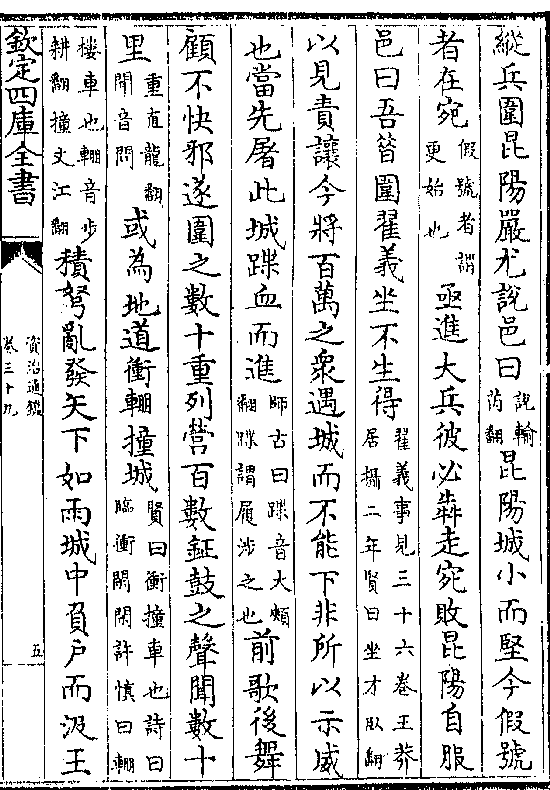 縱兵圍昆陽嚴尤說邑曰說輸芮翻昆陽城小而堅今假號
者在宛假號者謂更始也亟進大兵彼必犇走宛敗昆陽自服
邑曰吾昔圍翟義坐不生得翟義事見三十六卷王莽居攝二年賢曰坐才臥翻
以見責讓今將百萬之衆遇城而不能下非所以示威
也當先屠此城蹀血而進師古曰蹀音大頰翻蹀謂履涉之也前歌後舞
顧不快邪遂圍之數十重列營百數鉦鼓之聲聞數十
里重直龍翻聞音問或為地道衝輣撞城賢曰衝撞車也詩曰臨衝閑閑許慎曰輣
樓車也輣音步耕翻撞丈江翻積弩亂發矢下如雨城中負戶而汲王
欽定四庫全書
資治通鑑
卷三十九
五